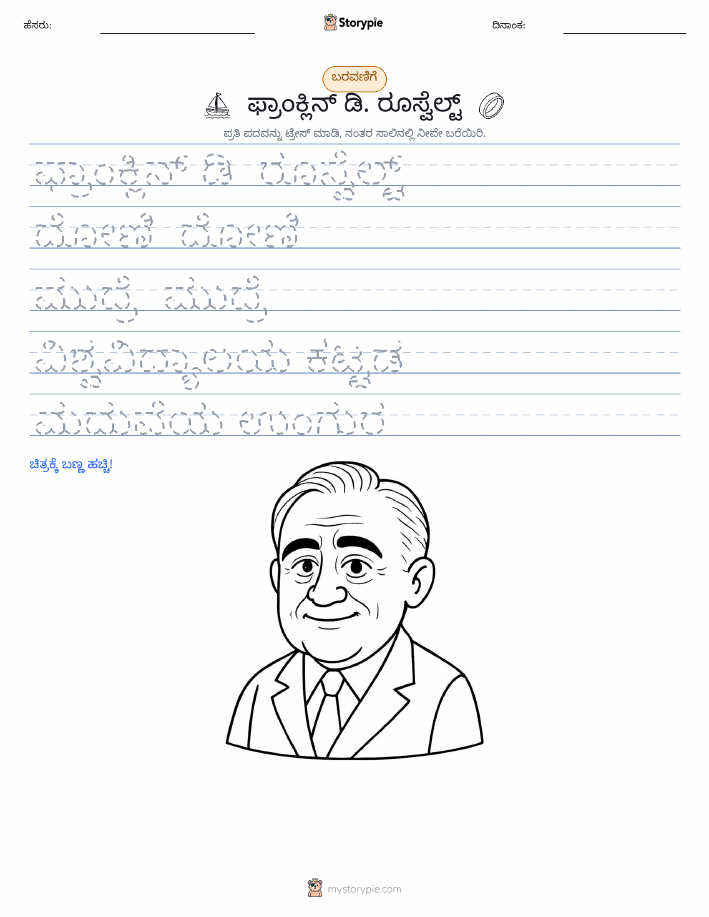 ಹೆಸರು:
Storypie
ದಿನಾಂಕ:
ಬರವಣಿಗೆ
ಫ್ರಾಂಕ್ಲಿನ್ ಡಿ. ರೂಸ್ವೆಲ್ಟ್
ಪ್ರತಿ ಪದವನ್ನು ಟ್ರೇಸ್ ಮಾಡಿ, ನಂತರ ಸಾಲಿನಲ್ಲಿ ನೀವೇ ಬರೆಯಿರಿ.
ಫ್ರಾಂಕ್ಲಿನ್ ಡಿ ರೂಸ್ವೆಲ್ಟ್
ದೋಣಿ ದೋಣಿ
ಮುದ್ರೆ ಮುದ್ರೆ
ವಿಶ್ವವಿದ್ಯಾಲಯ ಕಟ್ಟಡ
ಮದುವೆಯ ಉಂಗುರ
ಚಿತ್ರಕ್ಕೆ ಬಣ್ಣ ಹಚ್ಚಿ!
mystorypie.com